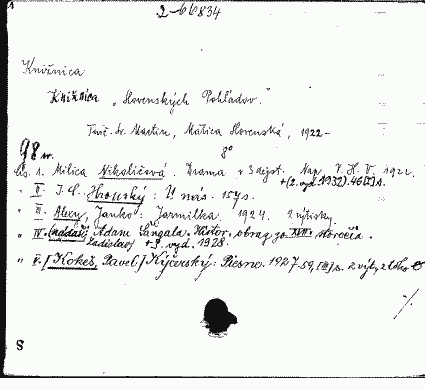 2-66834
Knižnica
Knižnica „Slovenských Pohľadov."
Turč. Sv. Martin, Matica Slovenská, 1922-
8°
98 sv.
čís. 1. Milica Nikoličová. Drama v 3 dejst. Nap. V. H. V. 1922.
+(2. vyd. 1932). 46 [I] s.
" II. J. C. Hronský: U nás. 157 s.
" III. Alexy, Janko: Jarmilka. 1924. 2 výtisky.
" IV. Nádaši Adam Šangala. Histor. obraz zo XVII. storočia.
Ladislav + 3. vyd. 1928.
" V. [Kokeš, Pavel] Kýčerský: Piesne. 1927. 59, [III] s. 2 výt.
S